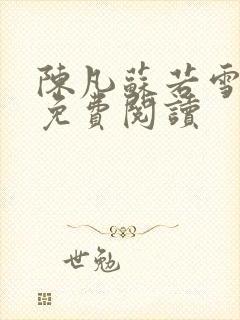 陳凡蘇若雪
免費閱讀
世勉